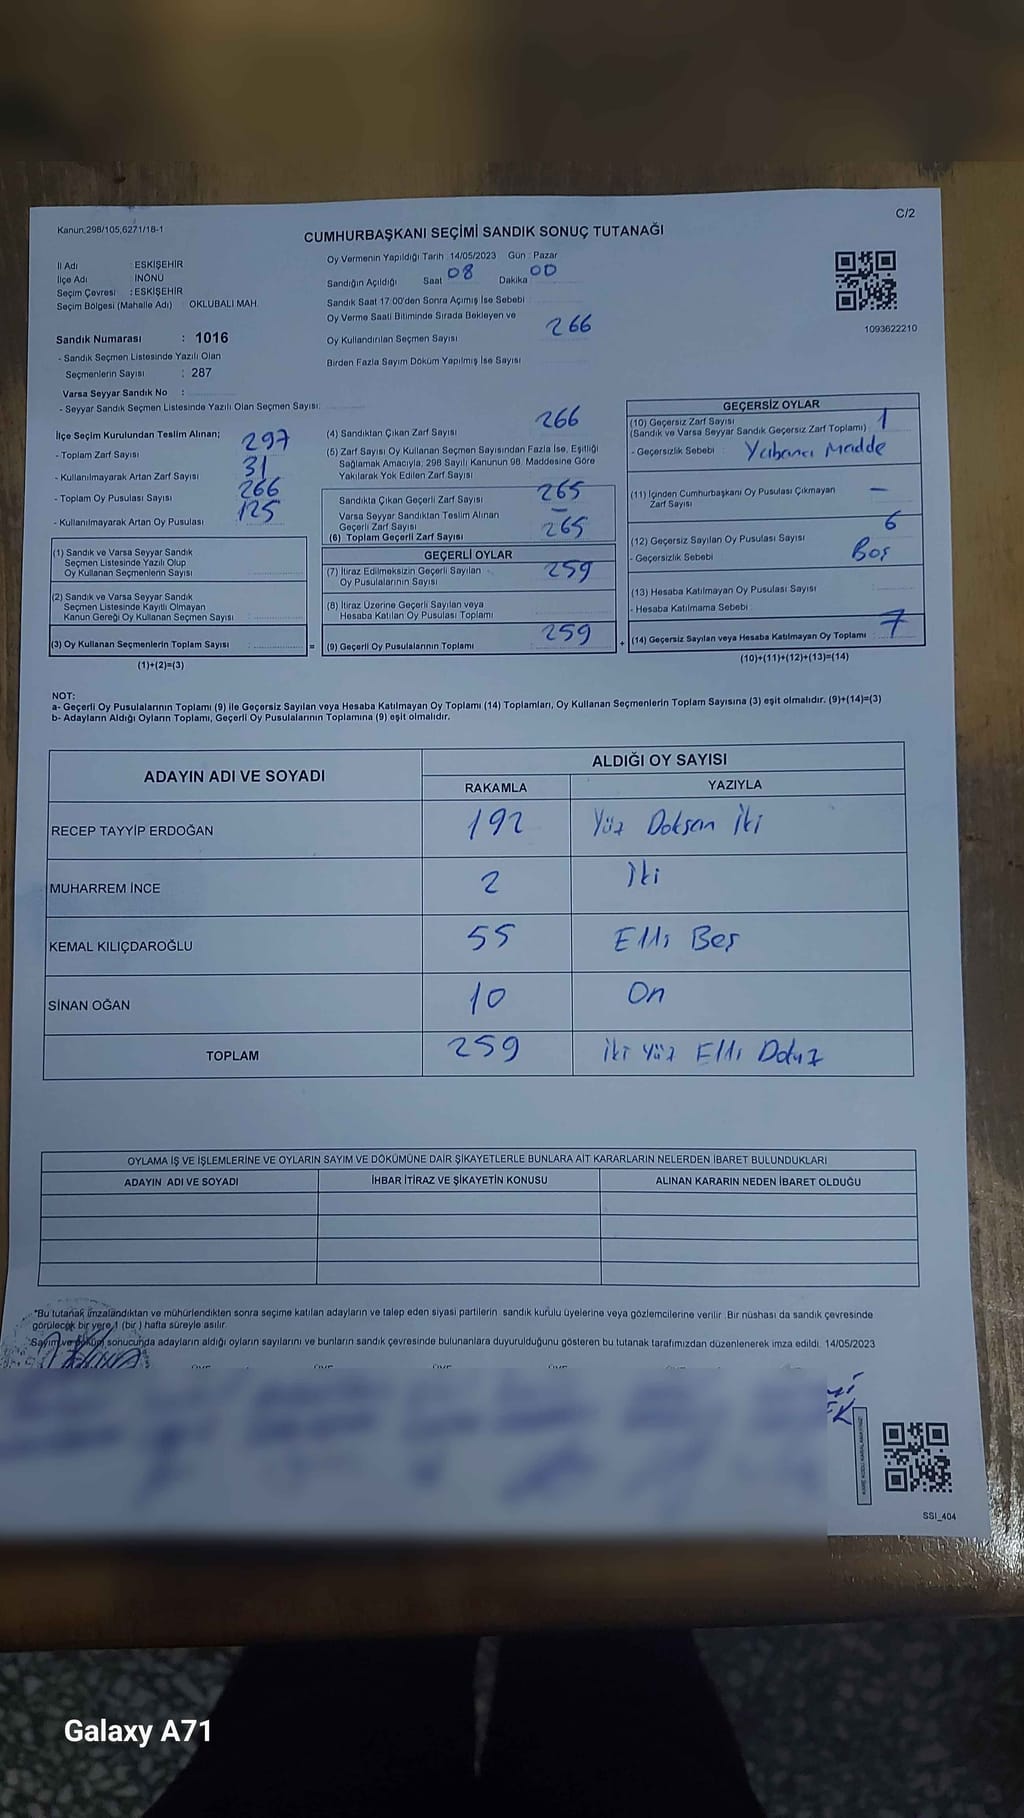 C/2
Kanun;298/105,6271/18-1
CUMHURBAŞKANI SEÇİMİ SANDIK SONUÇ TUTANAĞI
İl Adı : ESKİŞEHİR
İlçe Adı : İNÖNÜ
Seçim Çevresi : ESKİŞEHİR
Seçim Bölgesi (Mahalle Adı) OKLUBALI MAH.
Sandık Numarası : 1016
- Sandık Seçmen Listesinde Yazılı Olan
Seçmenlerin Sayısı : 287
Varsa Seyyar Sandık No :
- Seyyar Sandık Seçmen Listesinde Yazılı Olan Seçmen Sayısı:
Oy Vermenin Yapıldığı Tarih 14/05/2023 Gün : Pazar
Sandığın Açıldığı Saat 08 Dakika 00
Sandık Saat 17:00'den Sonra Açımış İse Sebebi
Oy Verme Saati Bitiminde Sırada Bekleyen ve
Oy Kullandırılan Seçmen Sayısı 266
Birden Fazla Sayım Döküm Yapılmış İse Sayısı
1093622210
İlçe Seçim Kurulundan Teslim Alınan;
- Toplam Zarf Sayısı 297
- Kullanılmayarak Artan Zarf Sayısı 31
- Toplam Oy Pusulası Sayısı 266
- Kullanılmayarak Artan Oy Pusulası 125
(1) Sandık ve Varsa Seyyar Sandık
Seçmen Listesinde Yazılı Olup
Oy Kullanan Seçmenlerin Sayısı
(2) Sandık ve Varsa Seyyar Sandık
Seçmen Listesinde Kayıtlı Olmayan
Kanun Gereği Oy Kullanan Seçmen Sayısı
(3) Oy Kullanan Seçmenlerin Toplam Sayısı =
(1)+(2)=(3)
(4) Sandıktan Çıkan Zarf Sayısı 266
(5) Zarf Sayısı Oy Kullanan Seçmen Sayısından Fazla İse, Eşitliği
Sağlamak Amacıyla, 298 Sayılı Kanunun 98. Maddesine Göre
Yakılarak Yok Edilen Zarf Sayısı
Sandıkta Çıkan Geçerli Zarf Sayısı 265
Varsa Seyyar Sandıktan Teslim Alınan
Geçerli Zarf Sayısı –
(6) Toplam Geçerli Zarf Sayısı 265
GEÇERLİ OYLAR
(7) İtiraz Edilmeksizin Geçerli Sayılan
Oy Pusulalarının Sayısı 259
(8) İtiraz Üzerine Geçerli Sayılan veya
Hesaba Katılan Oy Pusulası Toplamı
(9) Geçerli Oy Pusulalarının Toplamı 259 +
GEÇERSİZ OYLAR
(10) Geçersiz Zarf Sayısı
(Sandık ve Varsa Seyyar Sandık Geçersiz Zarf Toplamı) : 1
- Geçersizlik Sebebi : Yabancı Madde
(11) İçinden Cumhurbaşkanı Oy Pusulası Çıkmayan
Zarf Sayısı –
(12) Geçersiz Sayılan Oy Pusulası Sayısı 6
- Geçersizlik Sebebi Boş
(13) Hesaba Katılmayan Oy Pusulası Sayısı
- Hesaba Katılmama Sebebi
(14) Geçersiz Sayılan veya Hesaba Katılmayan Oy Toplamı : 7
(10)+(11)+(12)+(13)=(14)
NOT:
a- Geçerli Oy Pusulalarının Toplamı (9) ile Geçersiz Sayılan veya Hesaba Katılmayan Oy Toplamı (14) Toplamları, Oy Kullanan Seçmenlerin Toplam Sayısına (3) eşit olmalıdır. (9)+(14)=(3)
b- Adayların Aldığı Oyların Toplamı, Geçerli Oy Pusulalarının Toplamına (9) eşit olmalıdır.
ADAYIN ADI VE SOYADI
ALDIĞI OY SAYISI
RAKAMLA YAZIYLA
RECEP TAYYİP ERDOĞAN 192 Yüz Doksan İki
MUHARREM İNCE 2 İki
KEMAL KILIÇDAROĞLU 55 Elli Beş
SİNAN OĞAN 10 On
TOPLAM 259 İki Yüz Elli Dokuz
OYLAMA İŞ VE İŞLEMLERİNE VE OYLARIN SAYIM VE DÖKÜMÜNE DAİR ŞİKAYETLERLE BUNLARA AİT KARARLARIN NELERDEN İBARET BULUNDUKLARI
ADAYIN ADI VE SOYADI İHBAR İTİRAZ VE ŞİKAYETİN KONUSU ALINAN KARARIN NEDEN İBARET OLDUĞU
*Bu tutanak imzalandıktan ve mühürlendikten sonra seçime katılan adayların ve talep eden siyasi partilerin sandık kurulu üyelerine veya gözlemcilerine verilir. Bir nüshası da sandık çevresinde
görülecek bir yere 1 (bir) hafta süreyle asılır.
Sayım ve döküm sonucunda adayların aldığı oyların sayılarını ve bunların sandık çevresinde bulunanlara duyurulduğunu gösteren bu tutanak tarafımızdan düzenlenerek imza edildi. 14/05/2023
SSI_404
Galaxy A71